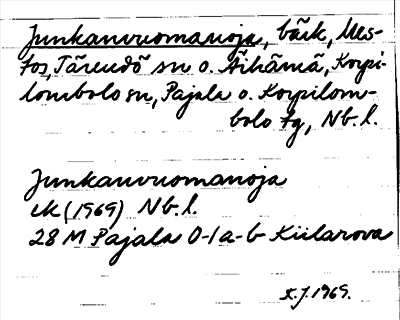 Junkanvuomanoja, bäck, Mes-
tos, Tärendö sn o. Äihämä, Korpi-
lombolo sn, Pajala o. Korpilom-
bolo tg, Nb. l.
Junkanvuomanoja
ek (1969) Nb. l.
28 M Pajala 0-1a-b Kiilarova
K.J. 1969.